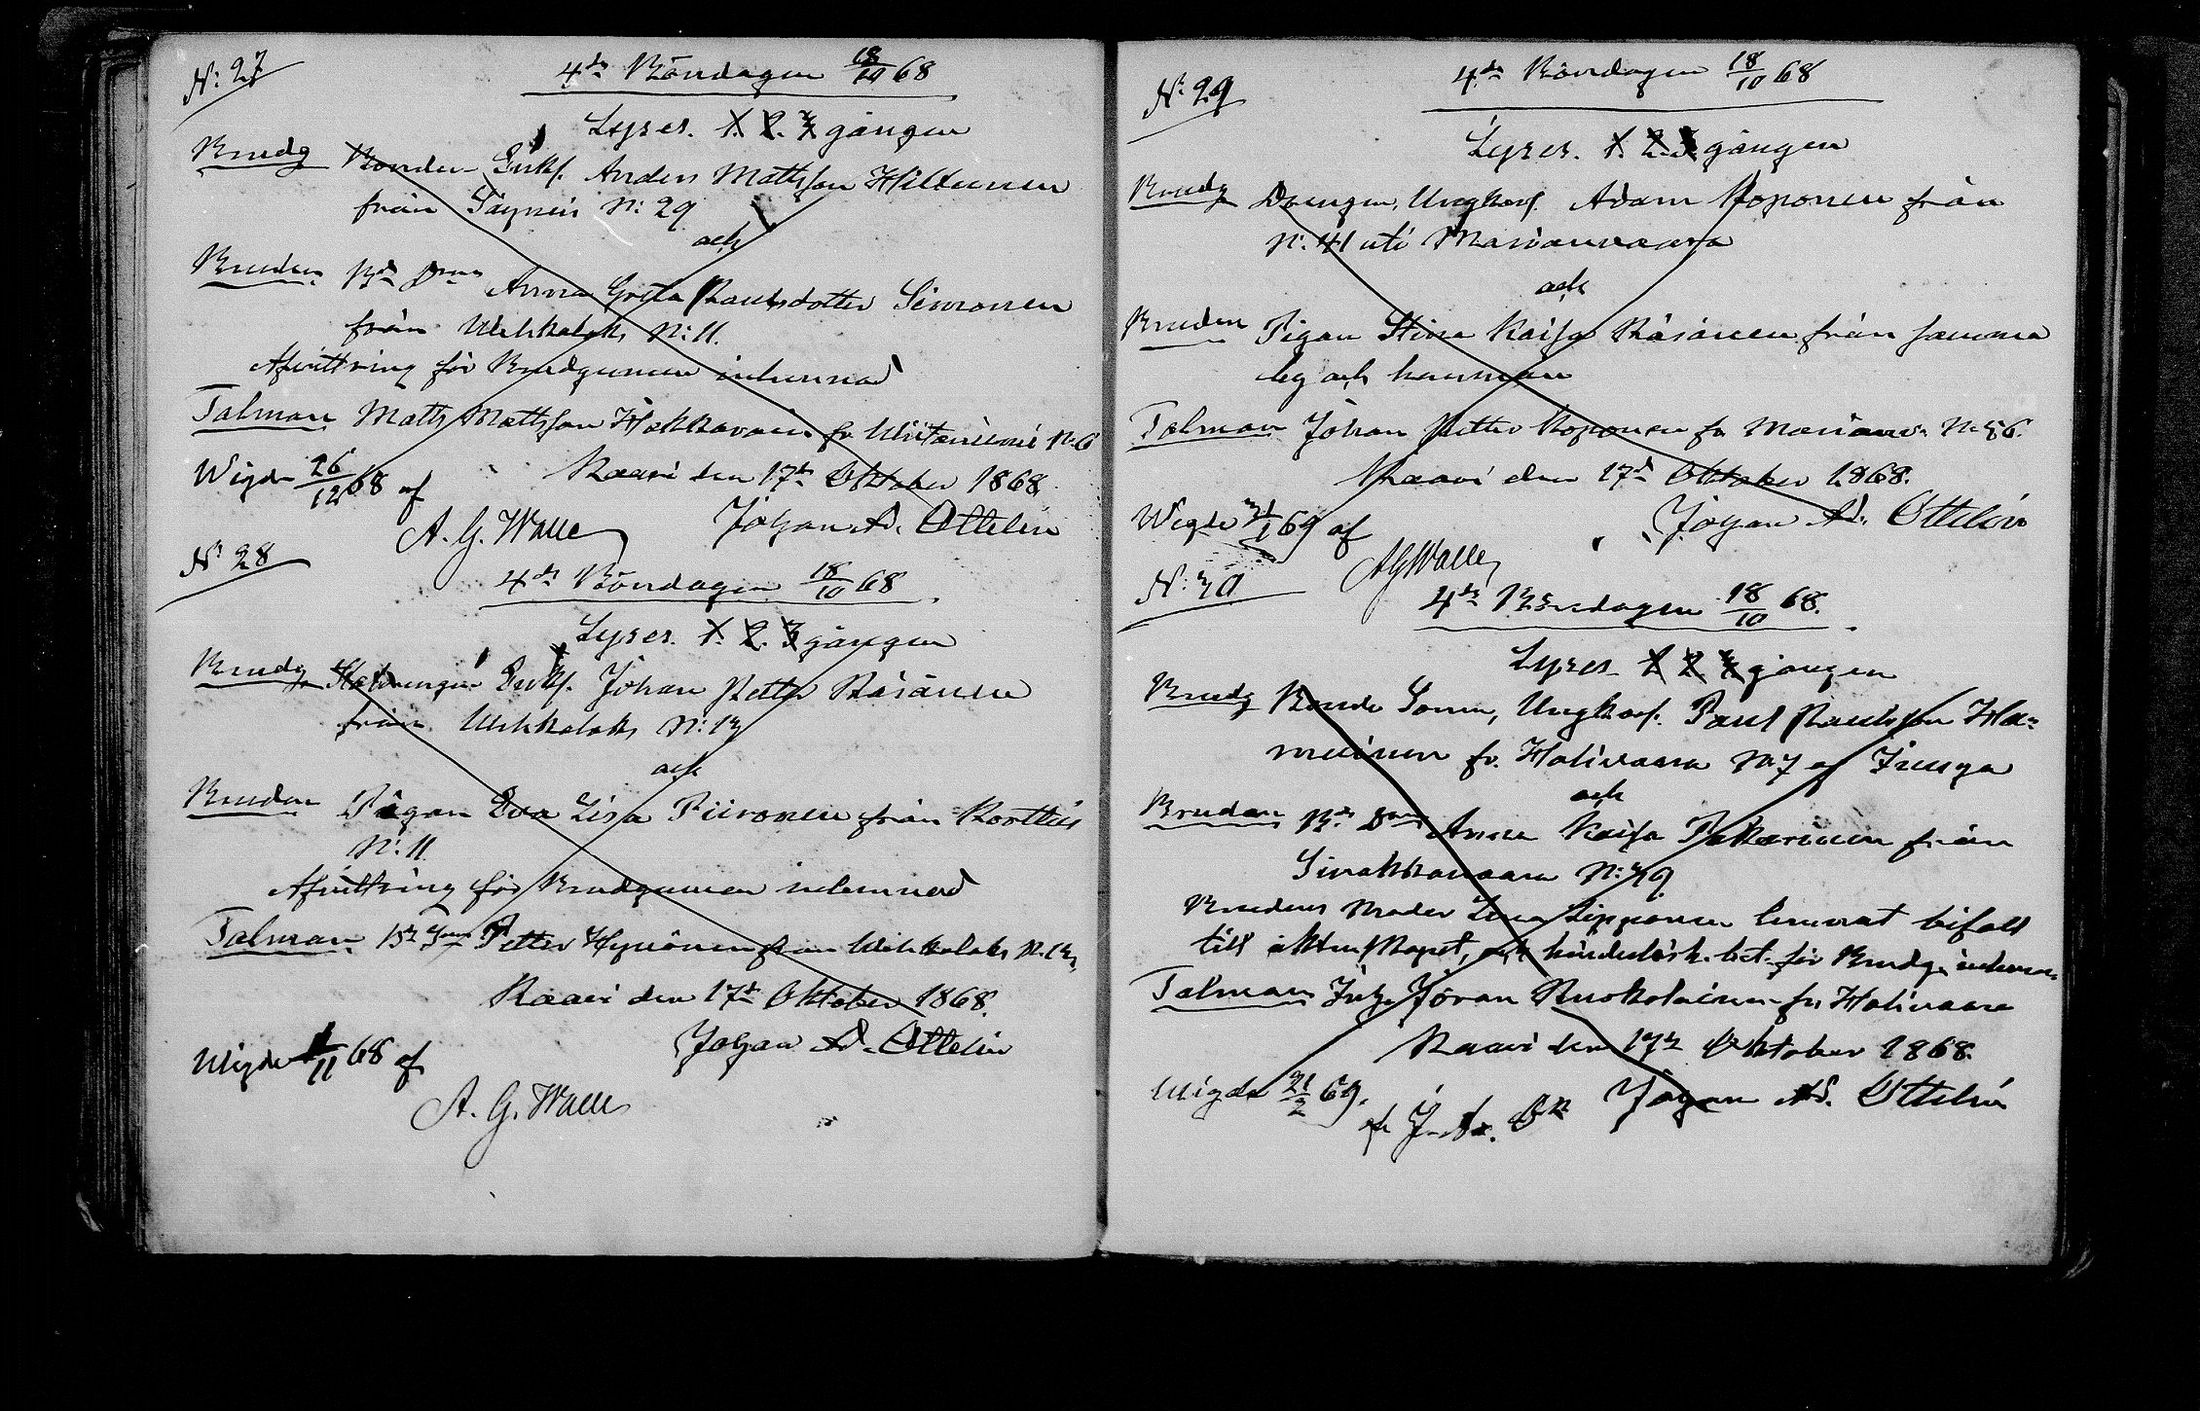 N: 27
4de Böndagen 18/10 68
Lyses. 1. 2. 3 gången
Brudg Bonden Enkl. Anders Mattsson Hiltunen
från Säyneis N: 29
och
Bruden Bde Dron Anna Greta Paulsdotter Sivonen
från Wehkalaks N: 11.
Afvittring för Brudgummen inlemnad
Talman Matts Mattsson Hakkarain fr N: 6
Wigde 26/12 68 af
Kaavi den 17de Oktober 1868
A. G. Walle
Johan Ad. Ottelin
N: 28
4de Böndagen 18/10 68
Lyses. 1. 2. 3 gången
Brudg Enkl. Johan Petter Räsänen
från Wehkalaks N: 13
och
Bruden Pigan Eva Lisa Piironen från Kortteis
N: 11
Afvittring för Brudgummen inlemnad
Talman Petter Hynönen från Wehkalaks N: 13
Kaavi den 17de Oktober 1868.
Johan Ad. Ottelin
Wigde 1/11 68 af
A. G. Walle
N: 29
4de Böndagen 18/10 68
Lyses. 1. 2. 3 gången
Brudg Drengen, Ungkarl. Adam Roponen från
N: 41 uti Marianvaara
och
Bruden Pigan Stina Kaisa Räsänen från samma
by och hemman
Talman Johan Petter Roponen fr Marianv. N: 56.
Kaavi den 17de Oktober 1868.
Wigde 31/1 69 af
Johan Ad. Ottelin
AGWalle
N: 30
4de Böndagen 18/10 68.
Lyses 1 2 3 gången
Brudg Bonde Sonen, Ungkarl. Paul Paulsson Ha-
muinen fr. Halivaara N: 7 af Juuga
och
Bruden Bde Dron Anna Kaisa Pekarinen från
Sivakkavaara N: 39
Brudens Moder Lena Lipponen lemnat bifall
till äktenskapet, och hinderlösh. bet. för Brudg. inlemn.
Talman Göran Ruokolainen fr Halivaara
Kaavi den 17de Oktober 1868.
Wigde 21/2 69.
Johan Ad. Ottelin